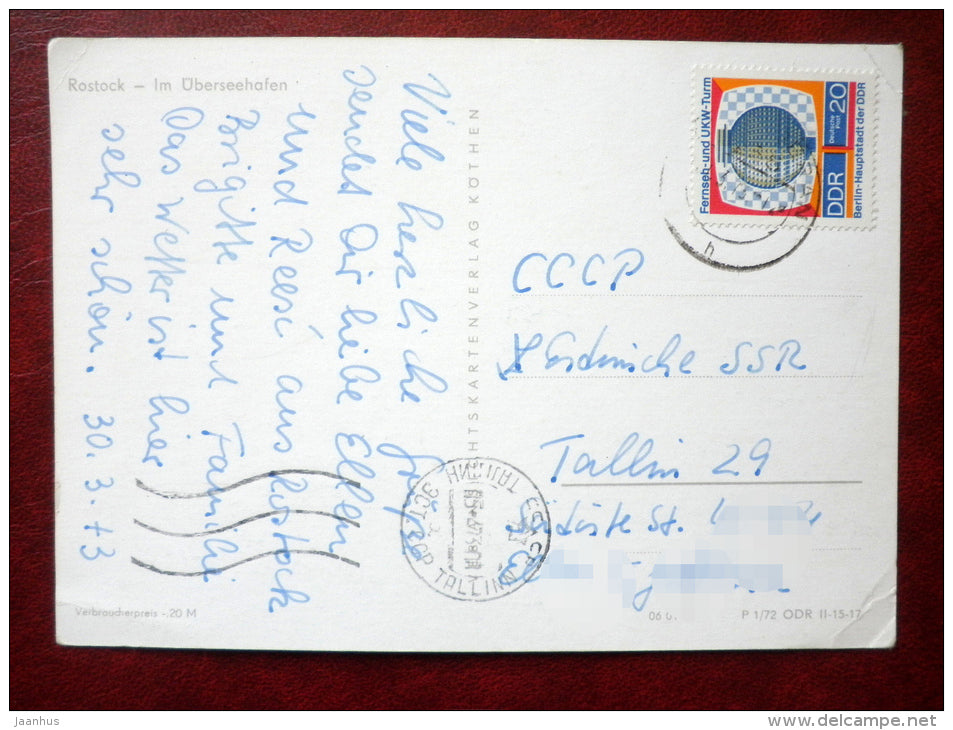 Rostock – Im Überseehafen
Viele herzliche Grüße
sendet Dir liebe Ellen
und Reesi aus Rostock
Brigitte und Familie
Das Wetter ist hier
sehr schön. 30.3.73
Verbraucherpreis -,20 M
KÖTHEN
Fernseh- und UKW-Turm
Deutsche Post 20
DDR
Berlin-Hauptstadt der DDR
CCCP
Estnische SSR
Tallin 29
St.
TALLINN
P 1/72 ODR II-15-17
Jaanhus
www.delcampe.net